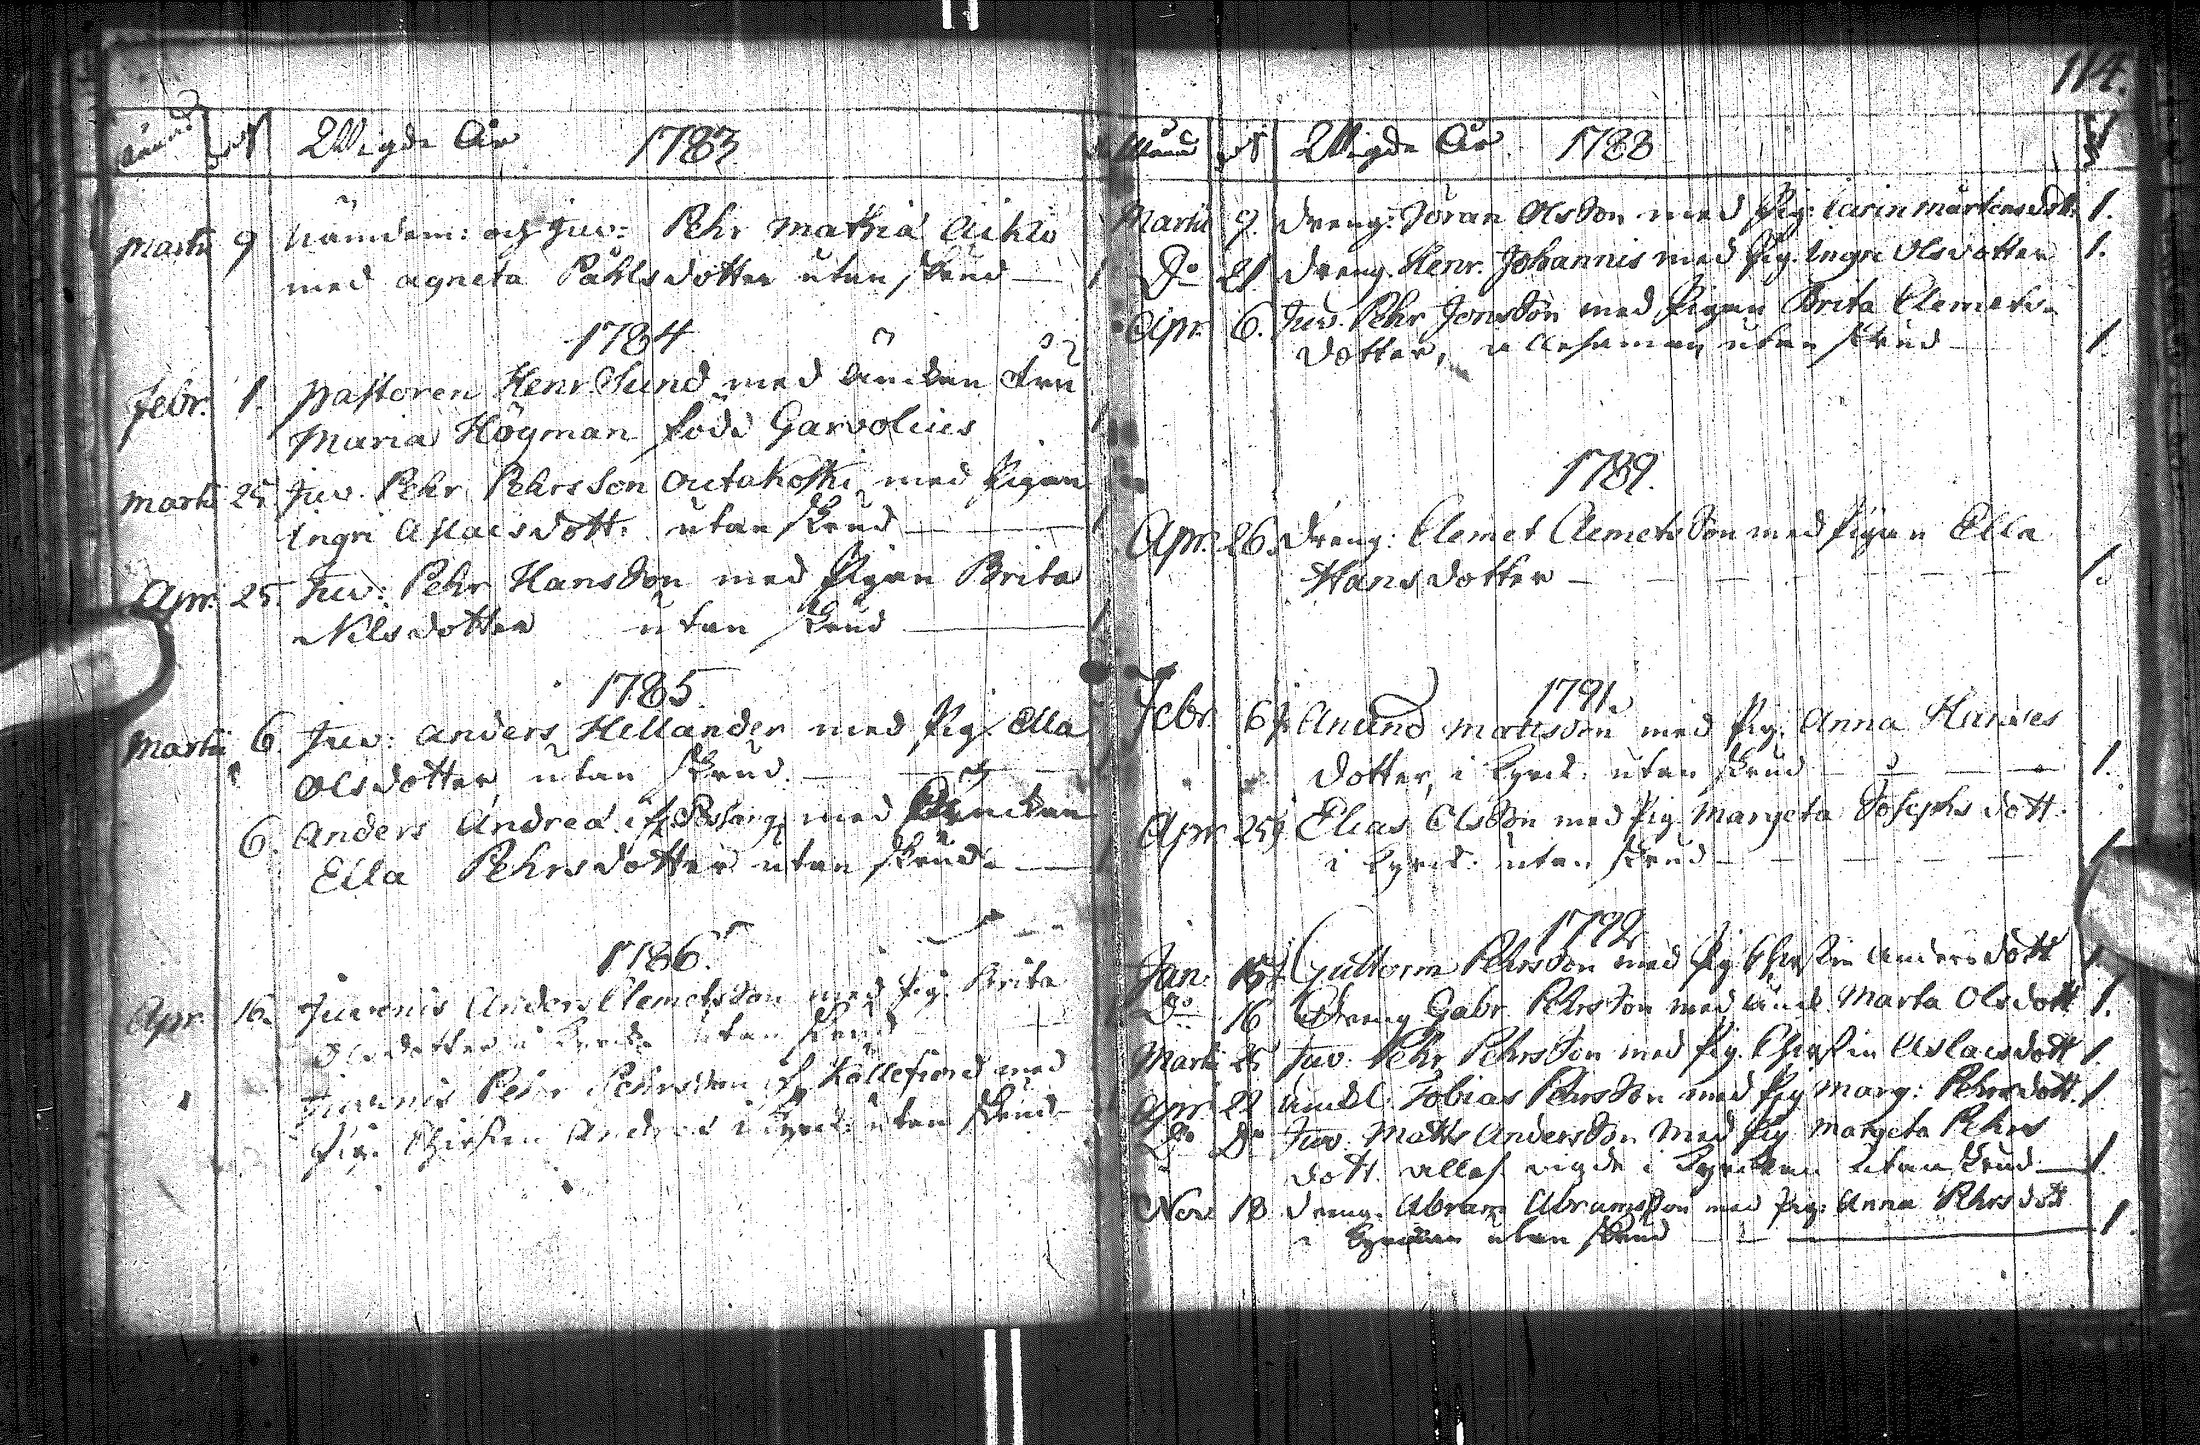 Wigde År 1783
Martii 9 Nämdem: och Juv: Pehr Mathiæ Aikio
med Agneta Påhlsdotter utan skrud — 1
1784
Febr. 1. Pastoren Henr. Sund med Änckan Fru
Maria Högman född Garvolius 1
Martii 25 Juv. Pehr Pehrsson Outakoski med Pigan
Ingri Aslacsdott. utan skrud — 1
Apr. 25. Juv: Pehr Hansson med Pigan Brita
Nilsdotter utan skrud — 1
1785
Martii 6. Juv: Anders Hellander med Pig. Ella
Olsdotter utan skrud. — 1
6. Anders Andreæ if. med Änckan
Ella Pehrsdotter utan skrud — 1
1786
Apr. 16. Juvenis Anders Clemetsson med Pig. Brita
Olsdotter i Kyrck. utan skrud
Juvenis Pehr Pehrsson if. Källefiord med
Pig. Chirstin Andreæ i Kyrck. utan skrud
114.
Månad Wigde År 1788
Martii 9. Dreng: Jöran Olsson med Pig: Carin Mårtensdott. 1.
Do 21 Dreng. Henr. Johannis med Pig. Ingri Olsdotter 1.
Apr. 6. Juv. Pehr Jonsson med Pigan Brita Clemets-
dotter, allesamman utan skrud — 1
1789.
Apr. 26. Dreng: Clemet Clemetsson med Pigan Ella
Hansdotter — 1.
1791.
Febr. 6 Anund Matisson med Pig. Anna Hannes
dotter, i Kyrck. utan skrud — 1.
Apr. 25 Elias Olsson med Pig. Margeta Josephsdott.
i Kyrck. utan skrud —
1792
Jan: 15 Guttorm Pehrsson med Pig. Chirstin Andersdott 1
Do 16 Dreng Gabr. Pehrsson med Änck. Marta Olsdott 1.
Martii 25 Juv. Pehr Pehrsson med Pig. Chirstin Aslacsdott 1
Apr. 22 Änckl. Tobias Pehrsson med Pig. Marg: Pehrsdott. 1
Do Do Juv. Matts Andersson med Pig. Margeta Pehrs
dott. allas vigde i Kyrckan utan skrud — 1
Nov. 18 Dreng. Abram Abramsson med Pig: Anna Pehrsdott
i Kyrckan utan skrud — 1.